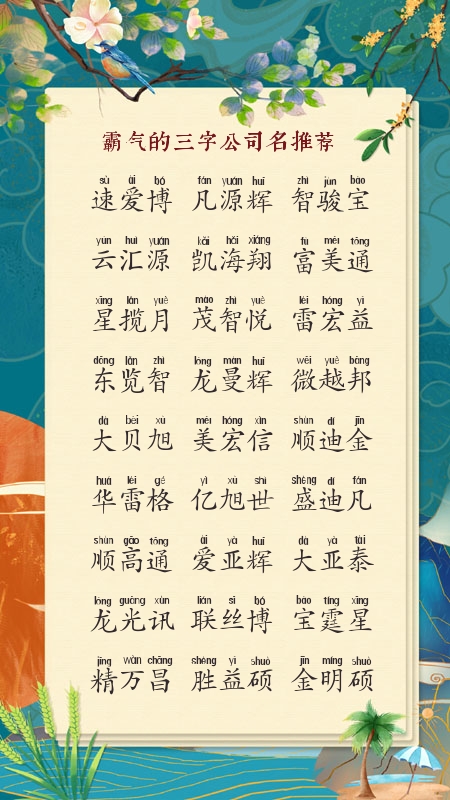 霸气的三字公司名推荐
sù ài bó fán yuán huī zhì jùn bǎo
速爱博 凡源辉 智骏宝
yún huì yuán kǎi hǎi xiáng fù měi tōng
云汇源 凯海翔 富美通
xīng lǎn yuè mào zhì yuè léi hóng yì
星揽月 茂智悦 雷宏益
dōng lǎn zhì lóng màn huī wēi yuè bāng
东览智 龙曼辉 微越邦
dà bèi xù měi hóng xìn shùn dí jīn
大贝旭 美宏信 顺迪金
huá léi gé yì xù shì shèng dí fán
华雷格 亿旭世 盛迪凡
shùn gāo tōng ài yà huī dà yà tài
顺高通 爱亚辉 大亚泰
lóng guāng xùn lián sī bó bǎo tíng xīng
龙光讯 联丝博 宝霆星
jīng wàn chāng shèng yì shuò jīn míng shuò
精万昌 胜益硕 金明硕